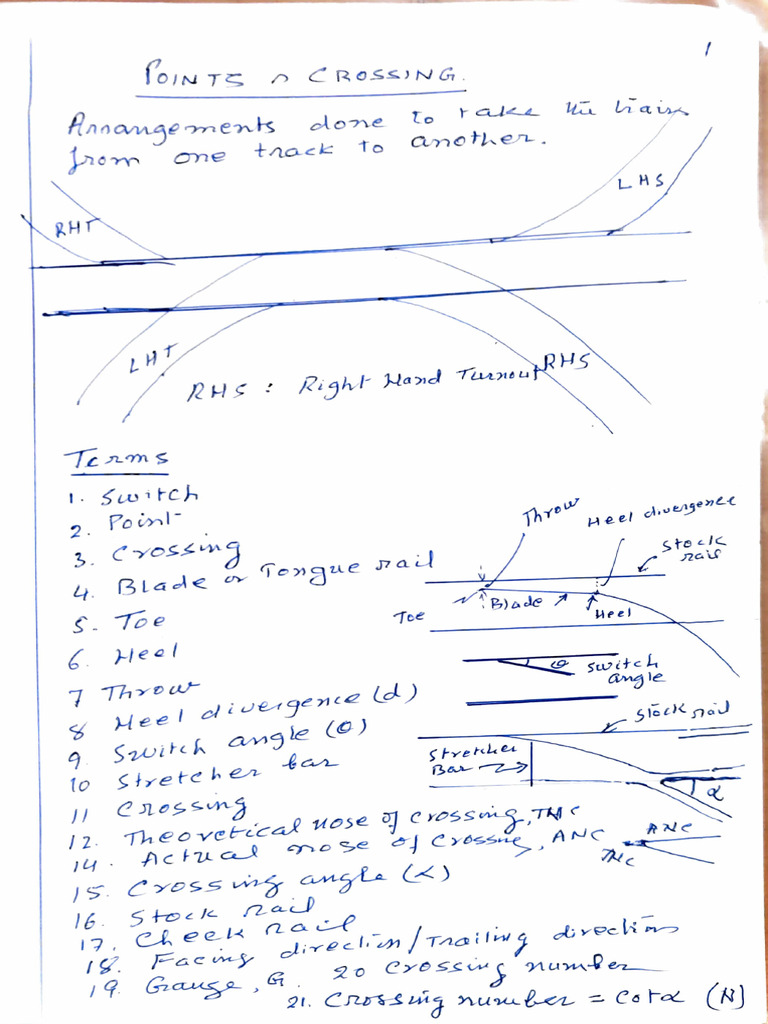 1
POINTS n CROSSING.
Arrangements done to take the trains
from one track to another.
LHS
RHT
LHT
RHS
RHS : Right Hand Turnout
Terms
1. Switch
2. Point
3. Crossing
4. Blade or Tongue rail
5. Toe
6. Heel
7 Throw
8 Heel divergence (d)
9. Switch angle (θ)
10 Stretcher bar
11 Crossing
12. Theoretical nose of crossing, TNC
14. Actual nose of crossing, ANC
15. Crossing angle (α)
16. Stock rail
17. Check rail
18. Facing direction/Trailing direction
19. Gauge, G. 20 Crossing number
21. Crossing number = cotα (N)
Throw
Heel divergence
Stock rail
Toe
Blade
Heel
θ switch angle
Stock rail
Stretcher
Bar
α
ANC
TNC